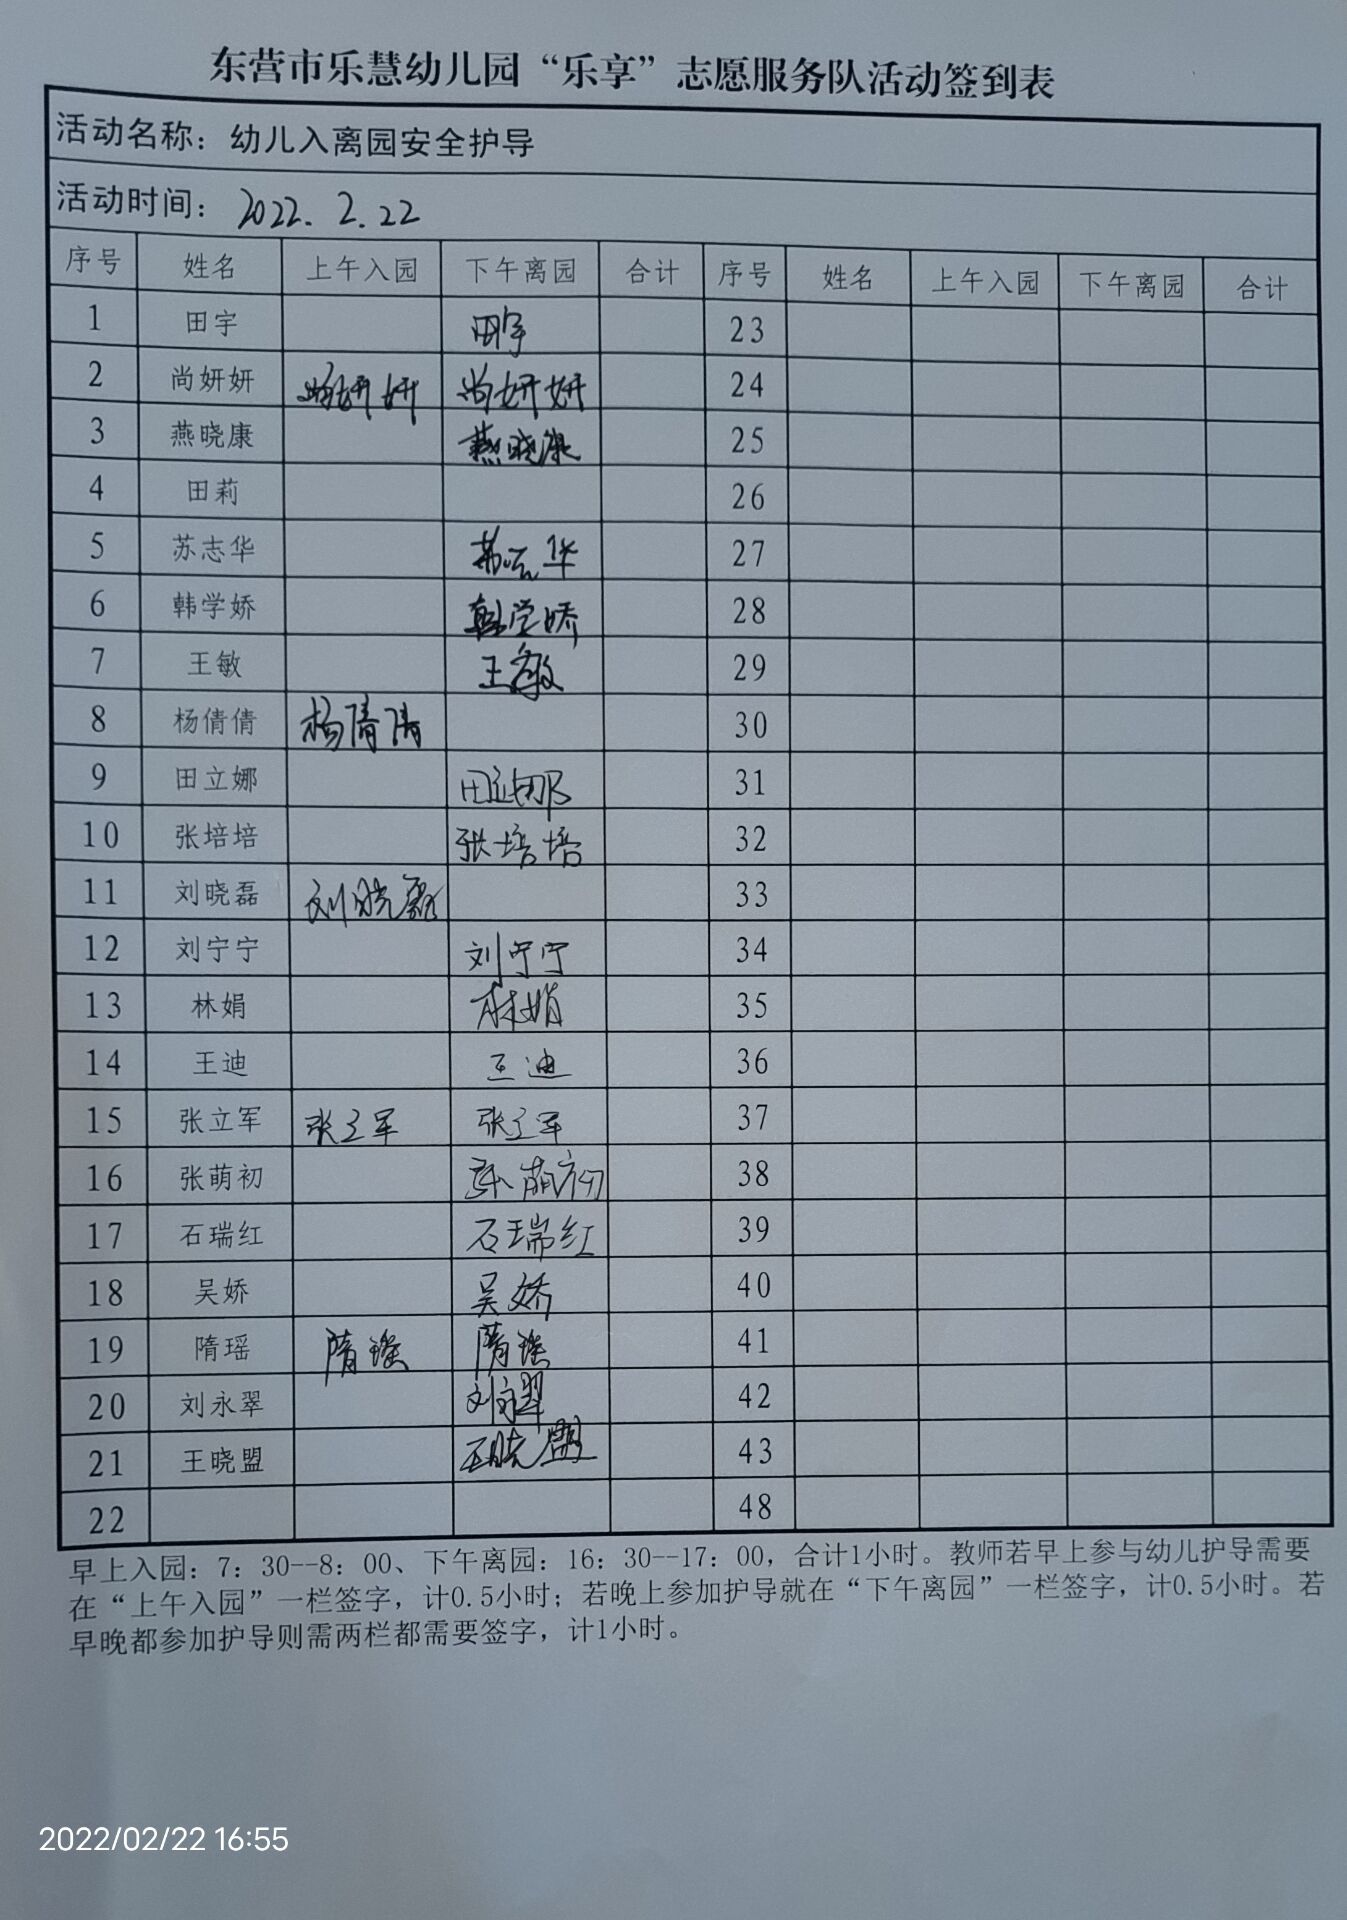 东营市乐慧幼儿园“乐享”志愿服务队活动签到表
活动名称：幼儿入离园安全护导
活动时间：2022.2.22
序号 姓名 上午入园 下午离园 合计 序号 姓名 上午入园 下午离园 合计
1 田宇 田宇 23
2 尚妍妍 尚妍妍 尚妍妍 24
3 燕晓康 燕晓康 25
4 田莉 26
5 苏志华 苏志华 27
6 韩学娇 韩学娇 28
7 王敏 王敏 29
8 杨倩倩 杨倩倩 30
9 田立娜 田立娜 31
10 张培培 张培培 32
11 刘晓磊 刘晓磊 33
12 刘宁宁 刘宁宁 34
13 林娟 林娟 35
14 王迪 王迪 36
15 张立军 张立军 张立军 37
16 张萌初 张萌初 38
17 石瑞红 石瑞红 39
18 吴娇 吴娇 40
19 隋瑶 隋瑶 隋瑶 41
20 刘永翠 刘永翠 42
21 王晓盟 王晓盟 43
22 48
早上入园：7：30--8：00、下午离园：16：30--17：00，合计1小时。教师若早上参与幼儿护导需要
在“上午入园”一栏签字，计0.5小时；若晚上参加护导就在“下午离园”一栏签字，计0.5小时。若
早晚都参加护导则需两栏都需要签字，计1小时。
2022/02/22 16:55